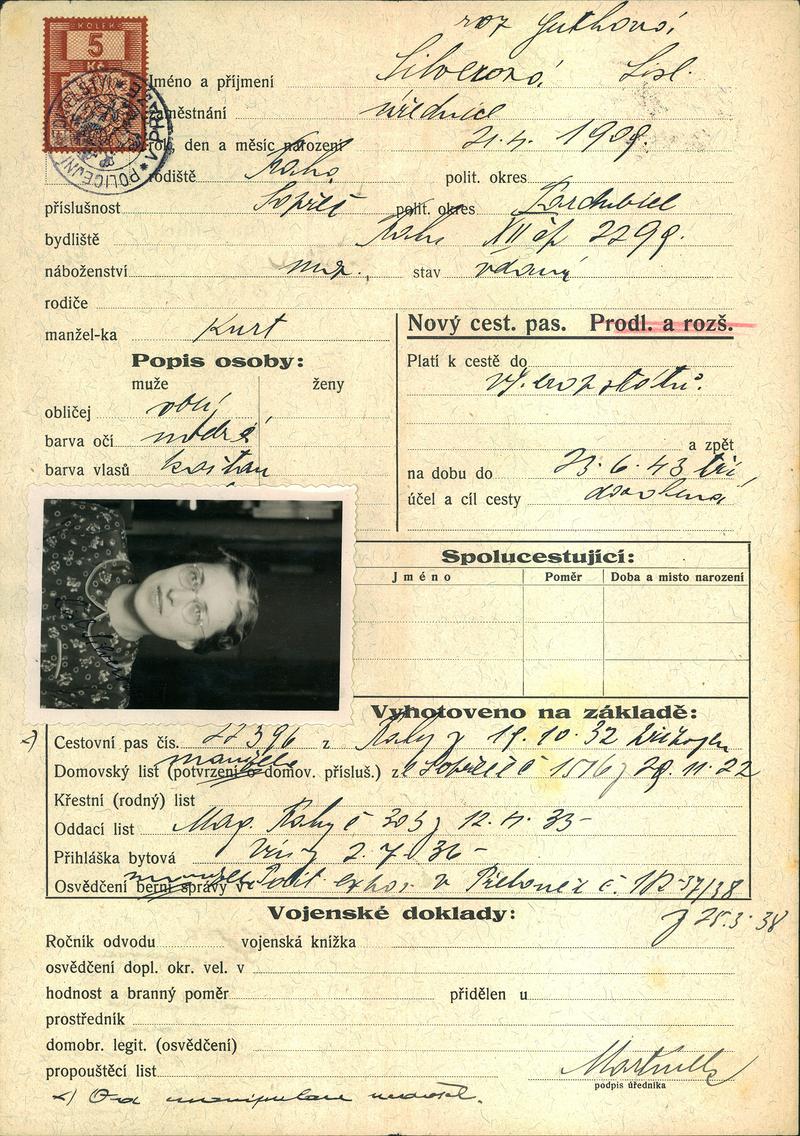 KOLEK
5
Kč
POLICEJNÍ ŘEDITELSTVÍ V PRAZE
roz Guthová
Jméno a příjmení Silverová Lisl.
zaměstnání úřednice
rok, den a měsíc narození 21.4. 1909.
rodiště Praha polit. okres
příslušnost Sopřeč polit. okres Pardubice
bydliště Praha XII čp 2299.
náboženství moz., stav vdaná
rodiče
manžel-ka Kurt
Nový cest. pas. Prodl. a rozš.
Popis osoby:
muže ženy
obličej obl.
barva očí modré
barva vlasů kaštan
Platí k cestě do
vš. evrop států.
a zpět
na dobu do 23.6.43 tří
účel a cíl cesty dovolená
Spolucestující:
Jméno Poměr Doba a misto narození
Vyhotoveno na základě:
Cestovní pas čís. 22396 z Prahy z 19.10.32
manžela
Domovský list (potvrzení o domov. přísluš.) z Sopřeče č 1516 z 29.11.22
Křestní (rodný) list
Oddací list Mag. Prahy č 305 z 12.4.33-
Přihláška bytová z 2.7.36-
manžela
Osvědčení berní správy v Přelouči č. 182-37/38
z 25.3.38
Vojenské doklady:
Ročník odvodu vojenská knížka
osvědčení dopl. okr. vel. v
hodnost a branný poměr přidělen u
prostředník
domobr. legit. (osvědčení)
propouštěcí list
podpis úředníka